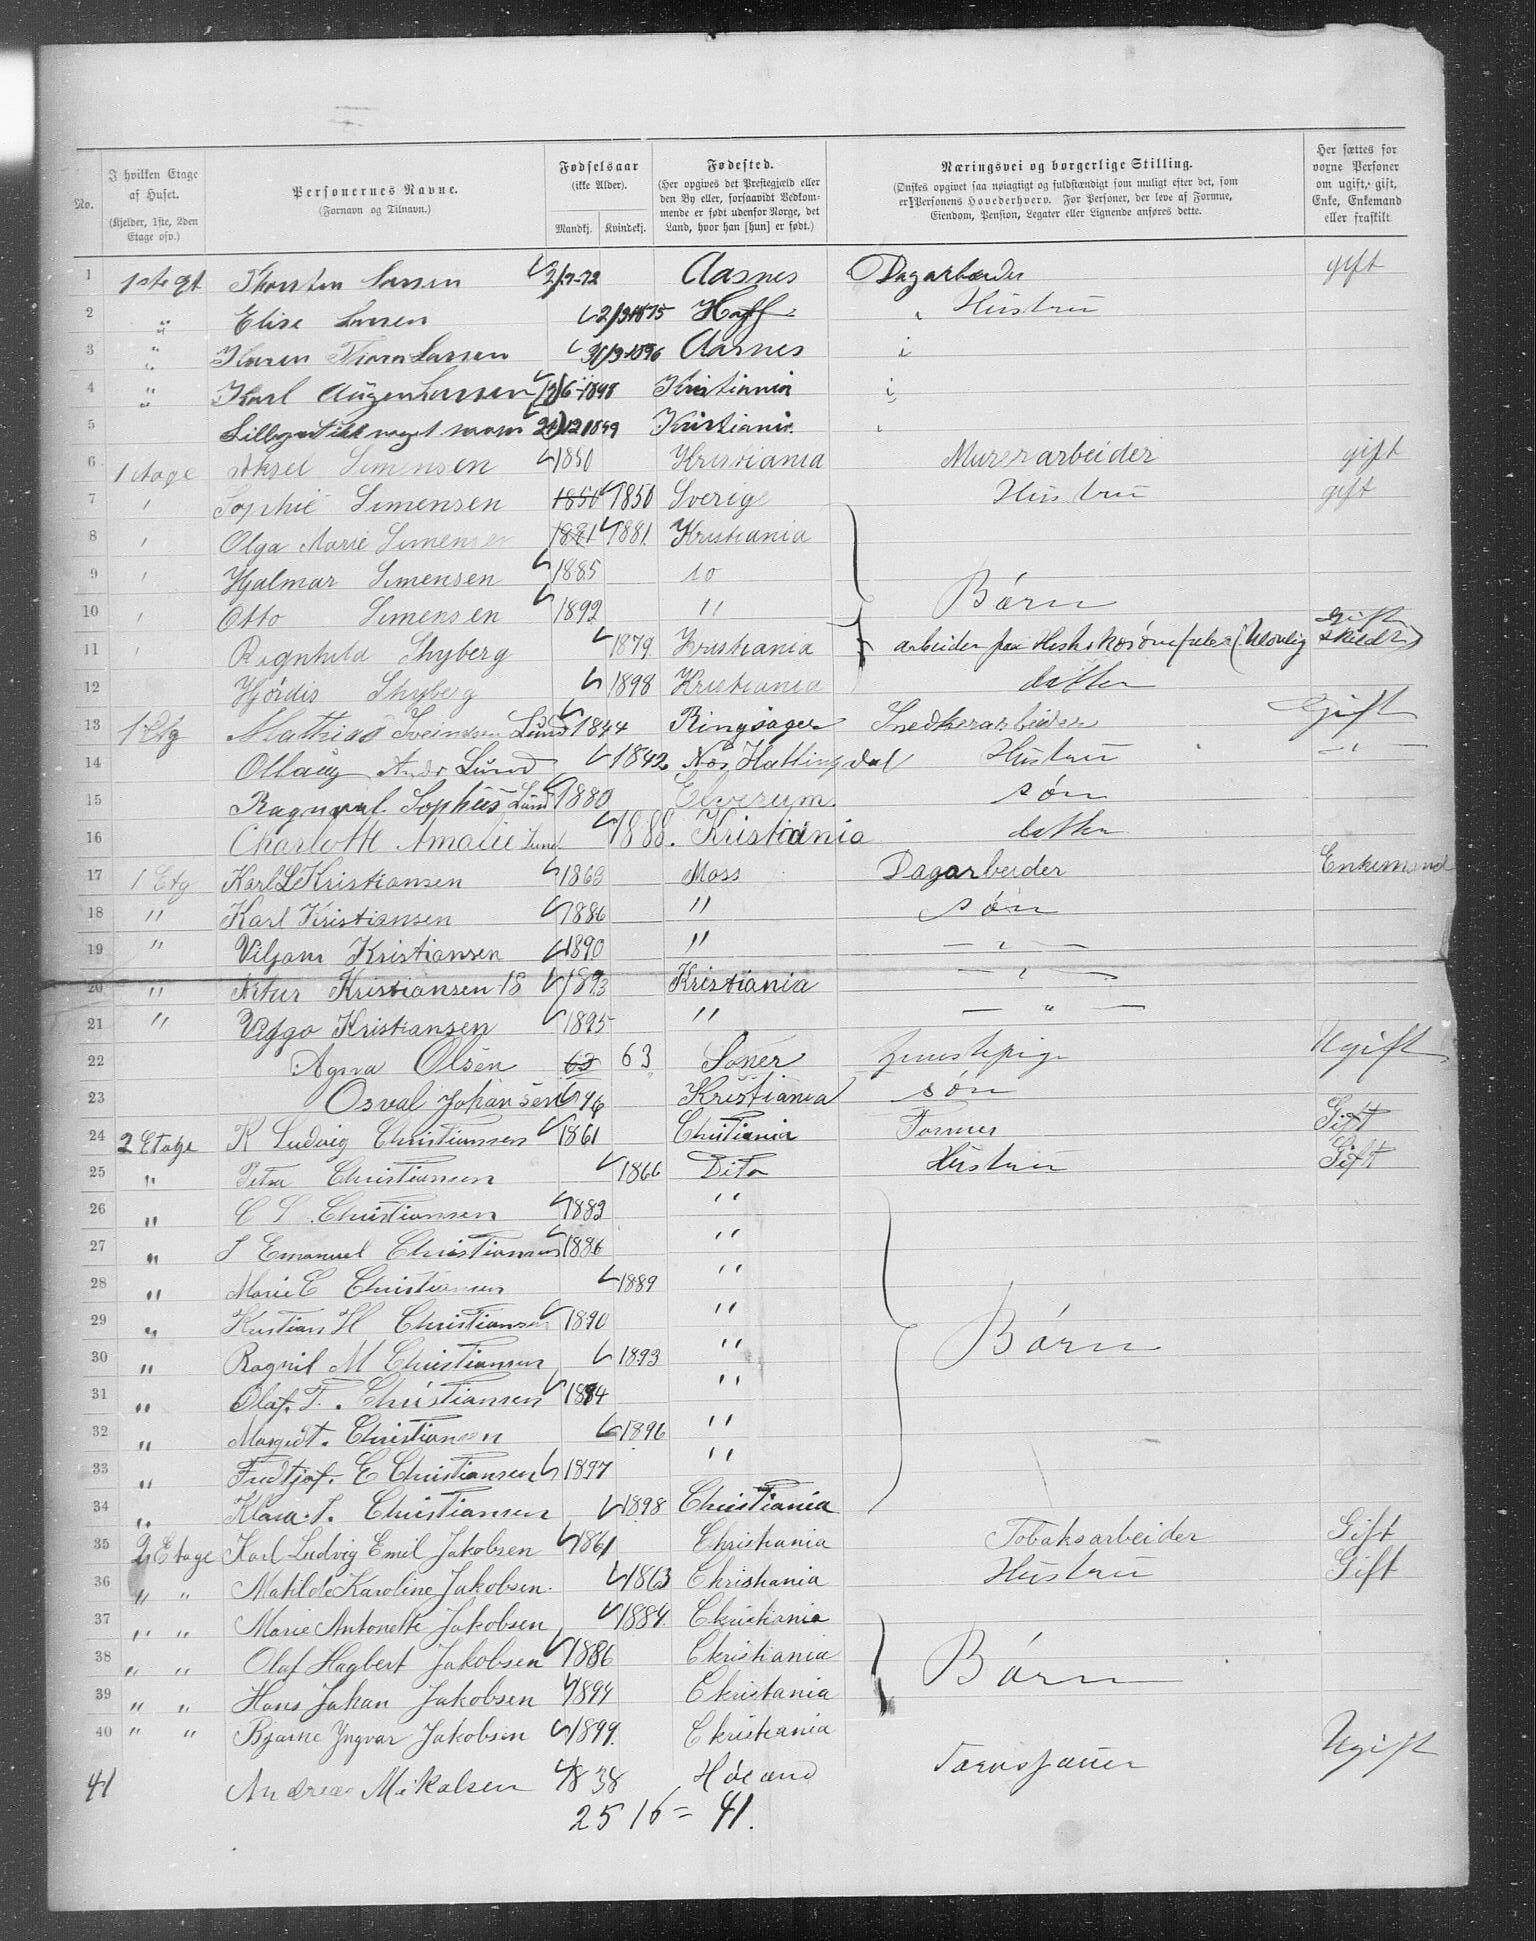 No. I hvilken Etage af Huset. (Kjelder, 1ste, 2den Etage osv.) Personernes Navne. (Fornavn og Tilnavn.) Fødselsaar (ikke Alder). Mandkj. Kvindekj. Fødested. (Her opgives det Prestegjæld eller den By eller, forsaavidt Vedkommende er født udenfor Norge, det Land, hvor han [hun] er født.) Næringsvei og borgerlige Stilling. (Ønskes opgivet saa nøiagtigt og fuldstændigt som muligt efter det, som er Personens Hovederhverv. For Personer, der leve af Formue, Eiendom, Pension, Legater eller Lignende anføres dette. Her sættes for voxne Personer om ugift, gift, Enke, Enkemand eller fraskilt.
1 1ste Thorsten Larsen 2/7-72 Aasnes Dagarbeider gift
2 " Elise Larsen 2/3 1875 Hoff Hustru
3 " Karen Larsen Aasnes
4 " Karl Larsen Kristiania
5 Kristiania
6 1 Etage Aksel Simensen 1850 Kristiania Murerarbeider gift
7 " Sophie Simensen 1850 1850 Sverige Hustru gift
8 " Olga Marie Simensen 1881 1881 Kristiania
9 " Hjalmar Simensen 1885 Do
10 " Otto Simensen 1892 " Børn
11 " Ragnhild Thyberg 1879 Kristiania arbeider paa gift skildt
12 Hjørdis Thyberg 1898 Kristiania datter
13 1 Etg Mathias Lund 1844 Ringsager Snedkerarbeider Gift
14 Ollaug Andr Lund 1842 Nes Hallingdal Hustru "
15 Ragnval Sophus Lund 1880 Elverum søn
16 Charlotte Amalie Lund 1888. Kristiania datter
17 1 Etg Karl L Kristiansen 1863 Moss Dagarbeider Enkemand
18 " Karl Kristiansen 1886 " søn
19 " Viljam Kristiansen 1890 " — " —
20 " Artur Kristiansen 18 1893 Kristiania — " —
21 " Viggo Kristiansen 1895 " — " —
22 Agnva Olsen 63 63 Soner Ugift
23 Osval Johansen 96 Kristiania søn
24 2 Etage K Ludvig Christiansen 1861 Christiania Former Gift
25 " Petra Christiansen 1866 Dito Hustru Gift
26 " C L Christiansen 1883 "
27 " J Emanuel Christiansen 1886 "
28 " Marie C Christiansen 1889 "
29 " Kristians H Christiansen 1890 " Børn
30 " Ragnil M Christiansen 1893 "
31 " Olaf. T. Christiansen 1894 "
32 " Margit. Christiansen 1896 "
33 " Fredtjof. E Christiansen 1897 "
34 " Klara. J. Christiansen 1898 Christiania
35 2 Etage Karl Ludvig Emil Jakobsen 1861 Christiania Tobaksarbeider Gift
36 " " Matilde Karoline Jakobsen. 1863 Christiania Hustru Gift
37 " " Marie Antonette Jakobsen 1884. Christiania
38 " " Olaf Hagbert Jakobsen 1886 Christiania Børn
39 " " Hans Johan Jakobsen 1894 Christania
40 " " Bjarne Yngvar Jakobsen 1899. Christiania
41 Andreas Mikalsen 1838 Høland Ugift
25 16 = 41.